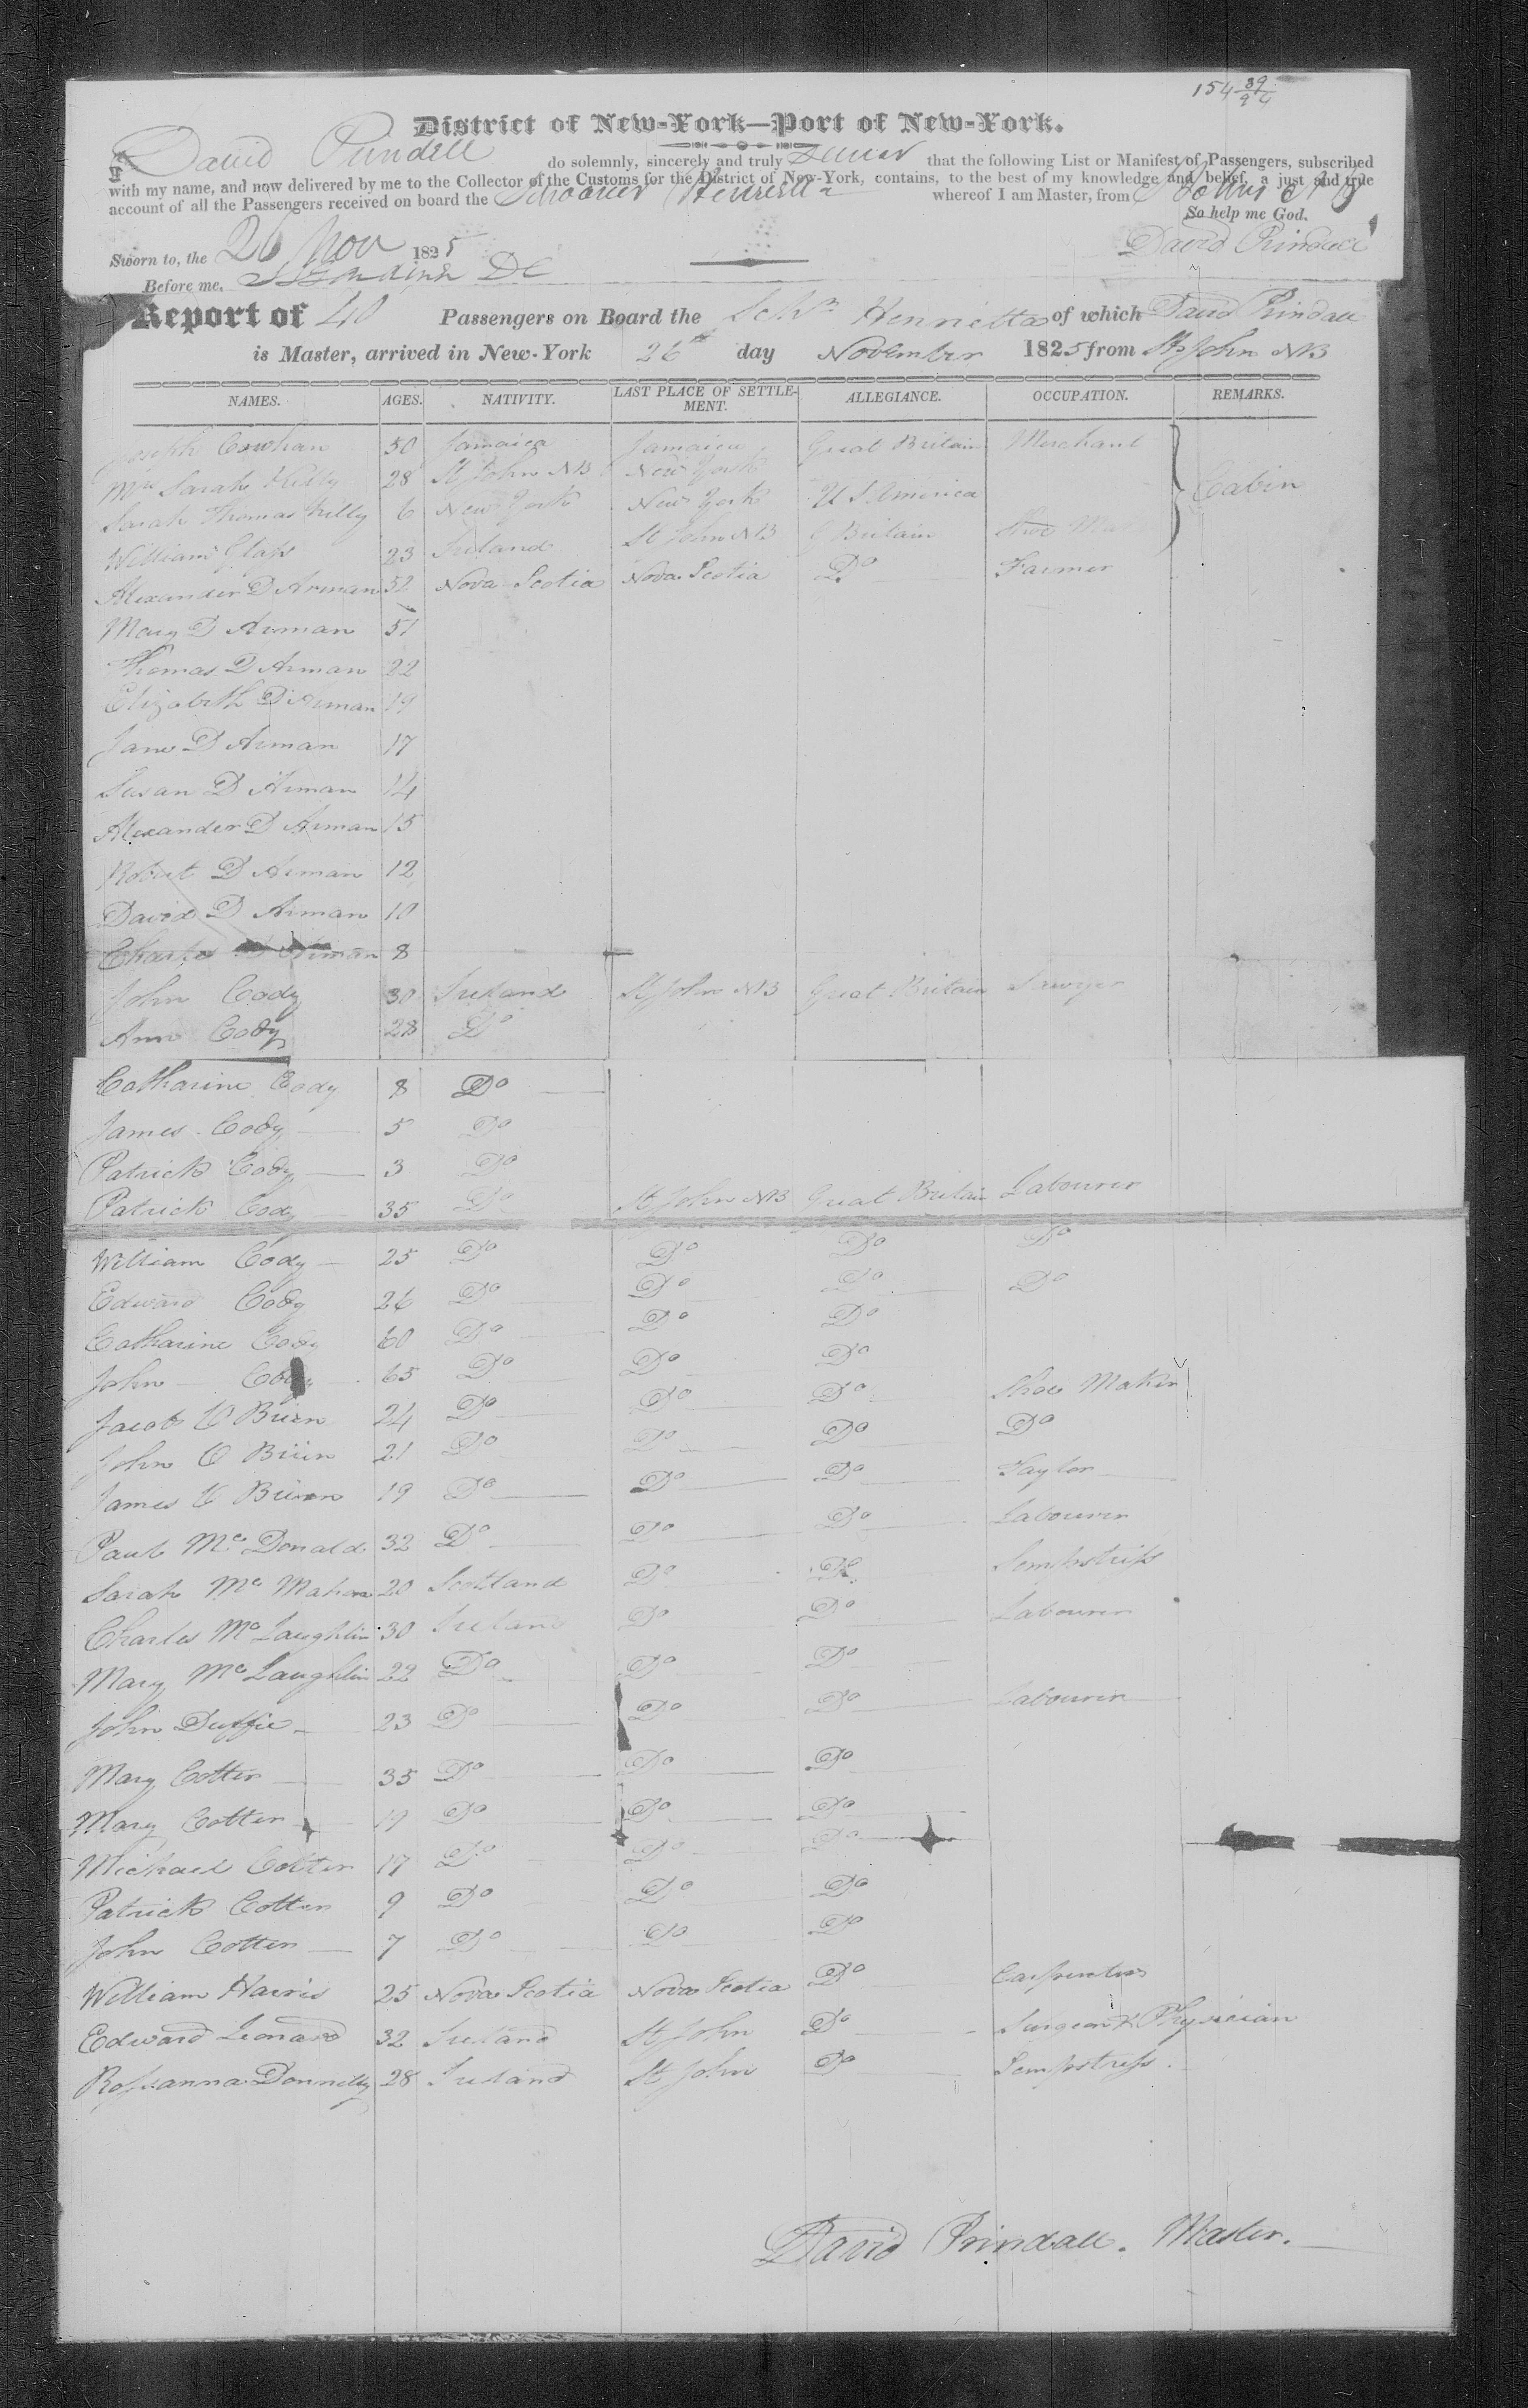 154 39/94
District of New-York—Port of New-York.
I, David Prindall do solemnly, sincerely and truly swear that the following List or Manifest of Passengers, subscribed
with my name, and now delivered by me to the Collector of the Customs for the District of New-York, contains, to the best of my knowledge and belief, a just and true
account of all the Passengers received on board the Schooner Henrietta whereof I am Master, from St Johns NB
So help me God.
Sworn to, the 26 Nov 1825 David Prindall
Before me,
Report of 40 Passengers on Board the Schr Henrietta of which David Prindall
is Master, arrived in New-York 26th day November 1825 from St John NB
NAMES. AGES. NATIVITY. LAST PLACE OF SETTLE-MENT. ALLEGIANCE. OCCUPATION. REMARKS.
Joseph Cowhan 50 Jamaica Jamaica Great Britain Merchant
Mrs Sarah Killy 28 St John NB New York
Cabin
Sarah Thomas Killy 6 New York New York U S America
William Glass 23 Ireland St John NB G Britain Shoe
Alexander D Arman 52 Nova Scotia Nova Scotia Do Farmer
Mary D Arman 51
Thomas D Arman 22
Elizabeth D Arman 19
Jane D Arman 17
Susan D Arman 14
Alexander D Arman 15
Robert D Arman 12
David D Arman 10
Charles D Arman 8
John Cody 30 Ireland St John NB Great Britain Sawyer
Ann Cody 28 Do
Catharine Cody 8 Do
James Cody 5 Do
Patrick Cody 3 Do
Patrick Cody 35 Do St John NB Great Britain Labourer
William Cody 25 Do Do Do Do
Edward Cody 26 Do Do Do Do
Catharine Cody 60 Do Do Do
John Cody 65 Do Do Do
Jacob O Brien 24 Do Do Do Shoe Maker
John O Brien 21 Do Do Do Do
James O Brien 19 Do Do Do Taylor
Paul Mc Donald 32 Do Do Do Labourer
Sarah Mc Mahon 20 Scotland Do Do Sempstress
Charles Mc Laughlin 30 Ireland Do Do Labourer
Mary Mc Laughlin 22 Do Do Do
John Duffie 23 Do Do Do Labourer
Mary Cotter 35 Do Do Do
Mary Cotter 19 Do Do Do
Michael Cotter 17 Do Do Do
Patrick Cotter 9 Do Do Do
John Cotter 7 Do Do Do
William Harris 25 Nova Scotia Nova Scotia Do Carpenter
Edward Leonard 32 Ireland St John Do Surgeon & Physician
Rossanna Donnelly 28 Ireland St John Do Sempstress
David Prindall. Master.